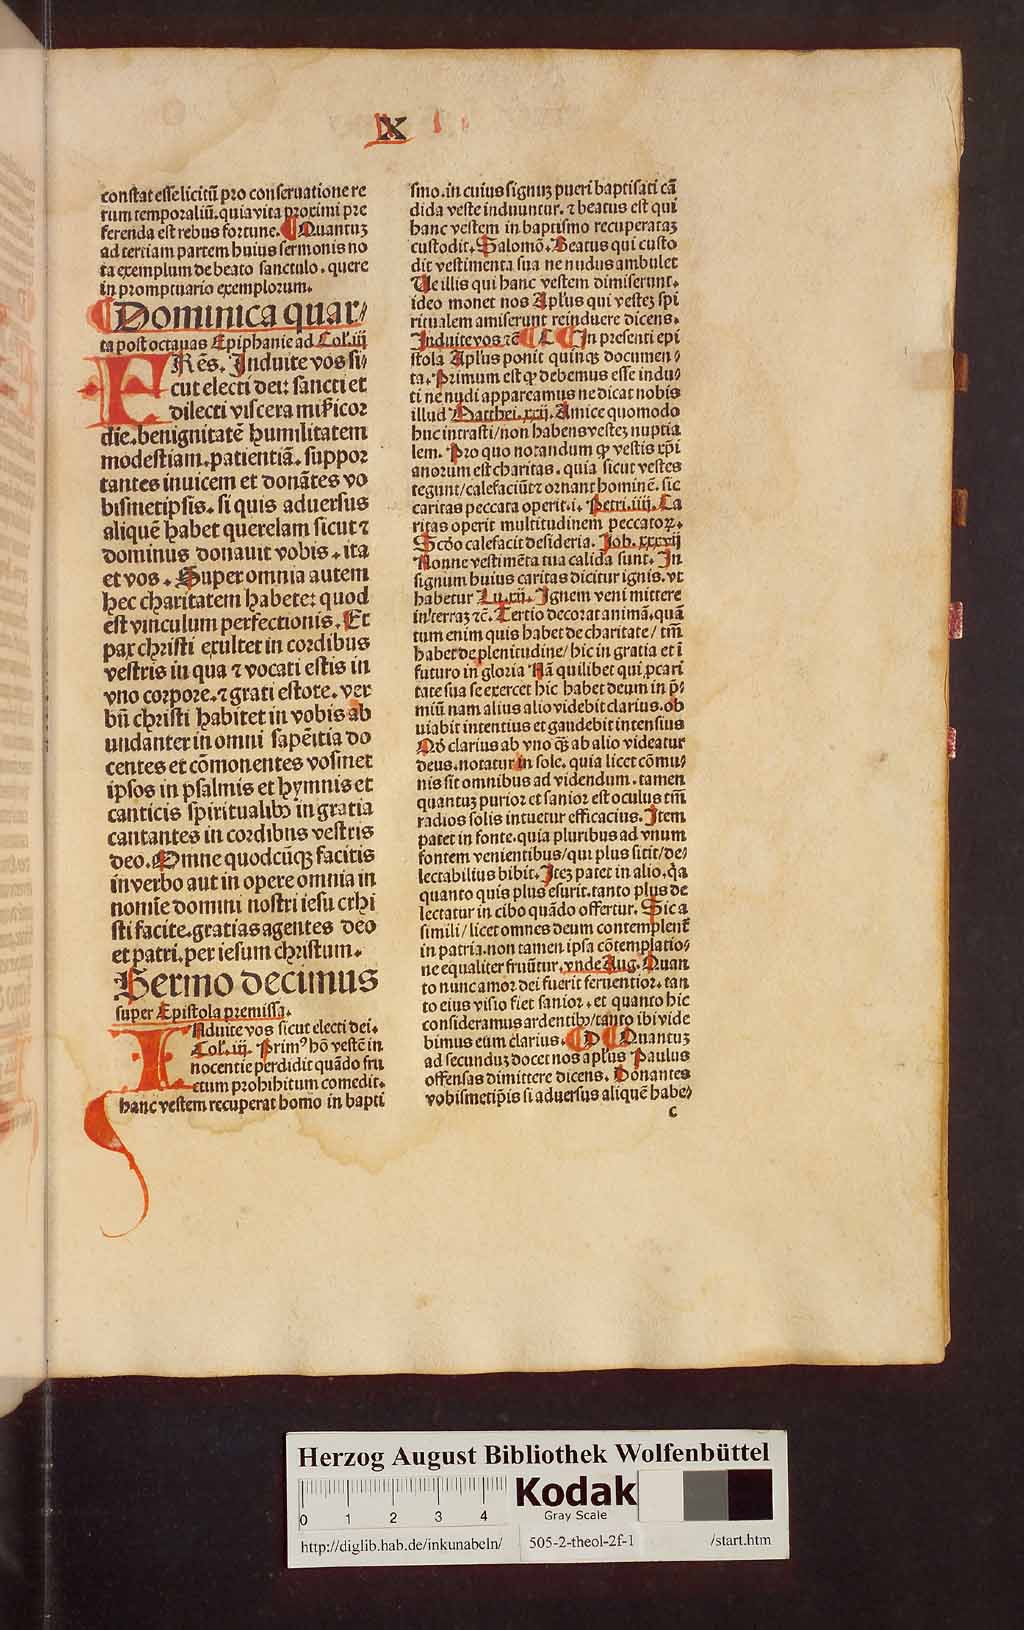 X
constat esse licitū pro conseruatione re
rum temporaliū. quia vita proximi pre
ferenda est rebus fortune. ¶ Quantuꝫ
ad tertiam partem huius sermonis no
ta exemplum de beato sanctulo. quere
in promptuario exemplorum.
¶ Dominica quar⸗
ta post octauas Epiphanie ad Col'. iij
FRēs. Induite vos si⸗
cut electi dei: sancti et
dilecti viscera mīsicor
die. benignitatē humilitatem
modestiam. patientiā. suppor
tantes inuicem et donātes vo
bismetipsis. si quis aduersus
aliquē habet querelam sicut ⁊
dominus donauit vobis. ita
et vos. Super omnia autem
hec charitatem habete: quod
est vinculum perfectionis. Et
pax christi exultet in cordibus
vestris in qua ⁊ vocati estis in
vno corpore. ⁊ grati estote. ver
bū christi habitet in vobis ab
undanter in omni sapēitia do
centes et cōmonentes vosmet
ipsos in psalmis et hymnis et
canticis spiritualibꝫ in gratia
cantantes in cordibus vestris
deo. Omne quodcūqꝫ facitis
in verbo aut in opere omnia in
nomīe domini nostri iesu crhi
sti facite. gratias agentes deo
et patri. per iesum christum.
Sermo decimus
super Epistola premissa.
INduite vos sicut electi dei.
Col'. iij. Primꝰ hō vestē in
nocentie perdidit quādo fru
ctum prohibitum comedit.
hanc vestem recuperat homo in bapti
smo. in cuius signuꝫ pueri baptisati cā
dida veste induuntur. ⁊ beatus est qui
hanc vestem in baptismo recuperataꝫ
custodit. Salomō. Beatus qui custo
dit vestimenta sua ne nudus ambulet
Ue illis qui hanc vestem dimiserunt.
ideo monet nos Apl'us qui vesteꝫ spi
ritualem amiserunt reinduere dicens.
Induite vos ⁊c̄ ¶ C ¶ In presenti epi
stola Apl'us ponit quinqꝫ documen⸗
ta. Primum est ꝙ debemus esse indu⸗
ti ne nudi appareamus ne dicat nobis
illud Matthei. xxij. Amice quomodo
huc intrasti/ non habens vesteꝫ nuptia
lem. Pro quo notandum ꝙ vestis xp̄i
anorum est charitas. quia sicut vestes
tegunt/ calefaciūt ⁊ ornant hominē. sic
caritas peccata operit. i. Petri. iiij. Ca
ritas operit multitudinem peccatoꝝ.
Scd̄o calefacit desideria. Job. xxxvij
Nonne vestimēta tua calida sunt. In
signum huius caritas dicitur ignis. vt
habetur Lu. xij. Ignem veni mittere
in terraꝫ ⁊c̄. Tertio decorat animā. quā
tum enim quis habet de charitate/ tm̄
habet de plenitudine/ hic in gratia et ī
futuro in gloria Nā quilibet qui ꝓ cari
tate sua se exercet hic habet deum in p̄⸗
miū nam alius alio videbit clarius. ob
uiabit intentius et gaudebit intensius
Nō clarius ab vno qꝫ ab alio videatur
deus. notatur in sole. quia licet cōmu⸗
nis sit omnibus ad videndum. tamen
quantuꝫ purior et sanior est oculus tm̄
radios solis intuetur efficacius. Item
patet in fonte. quia pluribus ad vnum
fontem venientibus/ qui plus sitit/ de⸗
lectabilius bibit. Iteꝫ patet in alio. q̄a
quanto quis plus esurit. tanto plus de
lectatur in cibo quādo offertur. Sic a
simili/ licet omnes deum contemplent᷑
in patria. non tamen ipsa cōtemplatio⸗
ne equaliter fruūtur. vnde Aug. Quan
to nunc amor dei fuerit feruentior. tan
to eius visio fiet sanior. et quanto hic
consideramus ardentibꝫ/ tanto ibi vide
bimus eum clarius. ¶ D ¶ Quantuꝫ
ad secunduꝫ docet nos apl'us Paulus
offensas dimittere dicens. Donantes
vobismetip̄is si aduersus aliquē habe⸗
c
Herzog August Bibliothek Wolfenbüttel
0 1 2 3 4
Kodak
Gray Scale
http://diglib.hab.de/inkunabeln/ 505-2-theol-2f-1 /start.htm